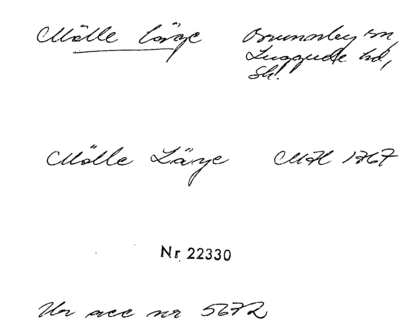 Mölle läge Brunnby sn,
Luggude hd,
Sk.
Mölle Läge MH 1767
Nr 22330
Ur acc nr 5672